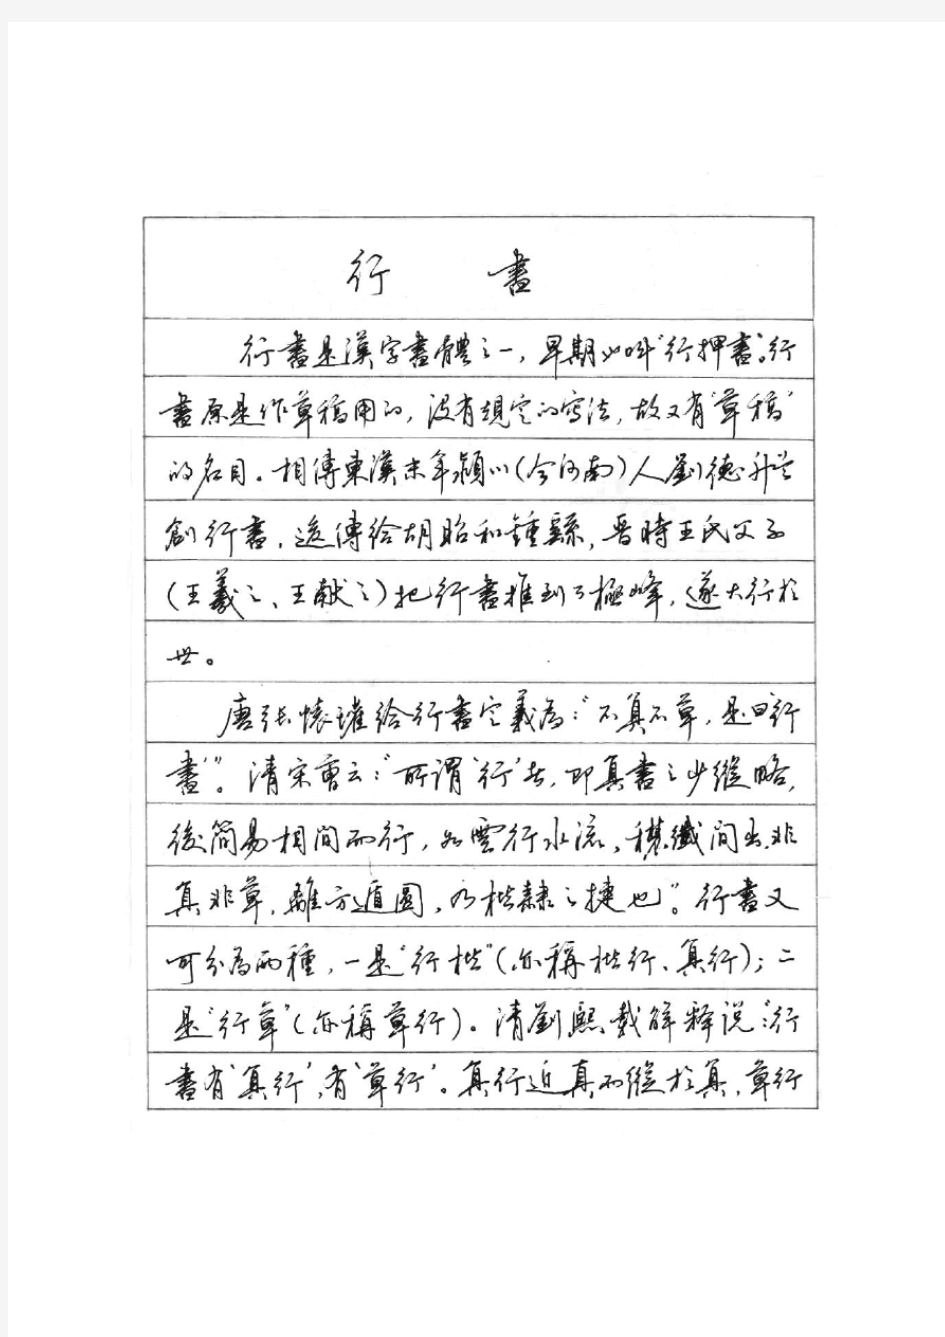 行 書
行書是漢字書體之一，早期也叫“行押書”。行
書原是作草稿用的，没有規定的寫法，故又有“草稿”
的名目。相傳東漢末年潁川（今河南）人劉德升
創行書，後傳給胡昭和鍾繇，晋時王氏父子
（王羲之、王献之）把行書推到了極峰，遂大行於
世。
唐張懷瓘給行書定義為：“不真不草，是曰‘行
書’”。清宋曹云：“所謂‘行’者，即真書之少縱略，
後簡易相間而行，如雲行水流，穠纖間出，非
真非草，離方遁圓，乃楷隸之捷也”。行書又
可分為兩種，一是“行楷”（亦稱楷行、真行）；二
是“行草”（亦稱草行）。清劉熙載解释说：“行
書有‘真行’，有‘草行’。真行近真而縱於真，草行